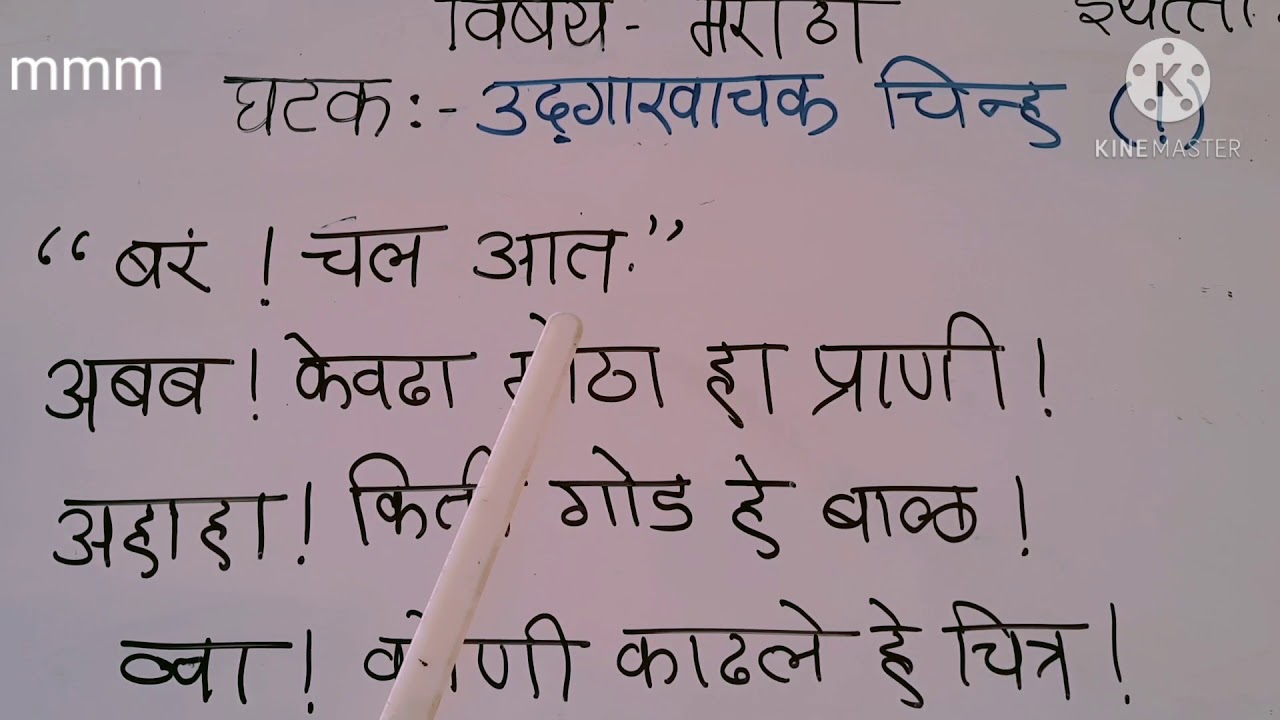 विषय - मराठी इयत्ता
mmm
घटक :- उद्गारवाचक चिन्ह (!)
KINEMASTER
“ बरं ! चल आत. ”
अबब ! केवढा मोठा हा प्राणी !
अहाहा ! किती गोड हे बाळ !
व्वा ! कोणी काढले हे चित्र !